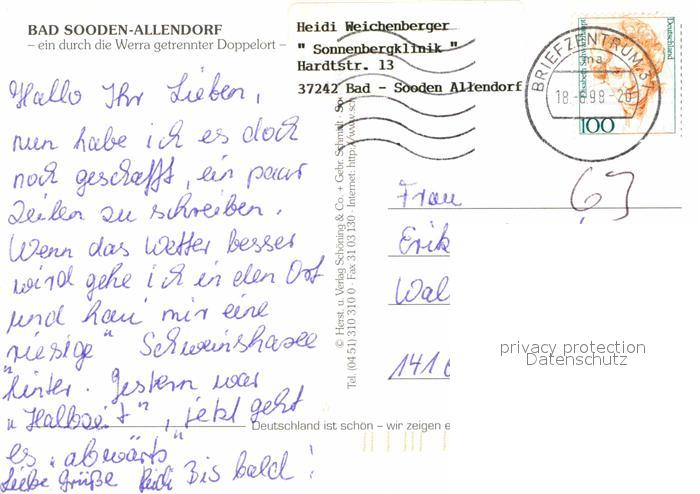 BAD SOODEN-ALLENDORF
– ein durch die Werra getrennter Doppelort –
Heidi Weichenberger
" Sonnenbergklinik "
Hardtstr. 13
37242 Bad - Sooden Allendorf
Deutschland
100
BRIEFZENTRUM 37
ma
18.-6.98-20
Hallo Ihr Lieben,
nun habe ich es doch
noch geschafft, ein paar
Zeilen zu schreiben.
Wenn das Wetter besser
wird gehe ich in den Ort
und hau' mir eine
"riesige" Schweinshaxe
hinter. Gestern war
"Halbzeit", jetzt geht
es "abwärts"
Liebe Grüße Heidi Bis bald!
© Herst. u. Verlag Schöning & Co. + Gebr. Schmidt
Tel. (04 51) 310 310 0 · Fax 31 03 130 · Internet: http://www.sc
Frau
Erik
Wal
141
63
privacy protection
Datenschutz
Deutschland ist schön – wir zeigen e